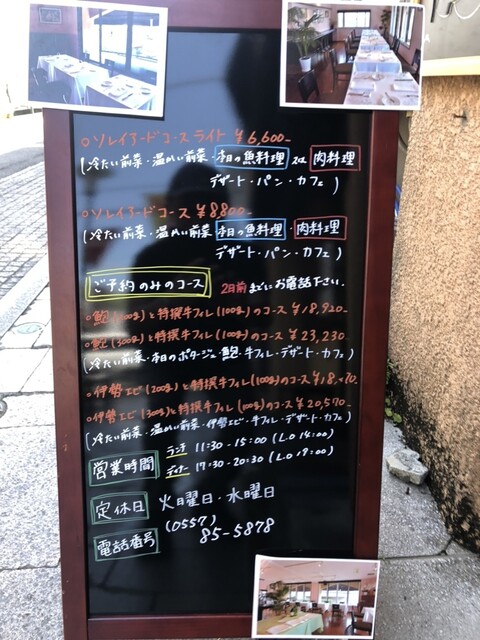 ○ソレイアードコースライト ¥6,600-
(冷たい前菜・温かい前菜・本日の魚料理 又は 肉料理
デザート・パン・カフェ)
○ソレイアードコース ¥8,800-
(冷たい前菜・温かい前菜 本日の魚料理・肉料理
デザート・パン・カフェ)
ご予約のみのコース 2日前までにお電話下さい.
○鮑(200g)と特撰牛フィレ(100g)のコース ¥18,920-
○鮑(300g)と特撰牛フィレ(100g)のコース ¥23,230-
(冷たい前菜・本日のポタージュ・鮑・牛フィレ・デザート・カフェ)
○伊勢エビ(200g)と特撰牛フィレ(100g)のコース
○伊勢エビ(300g)と特撰牛フィレ(100g)のコース ¥20,570-
(冷たい前菜・温かい前菜・伊勢エビ・牛フィレ・デザート・カフェ)
営業時間 ランチ 11:30-15:00 (L.O 14:00)
ディナー 17:30-20:30 (L.O 19:00)
定休日 火曜日・水曜日
電話番号 (0557)
85-5878